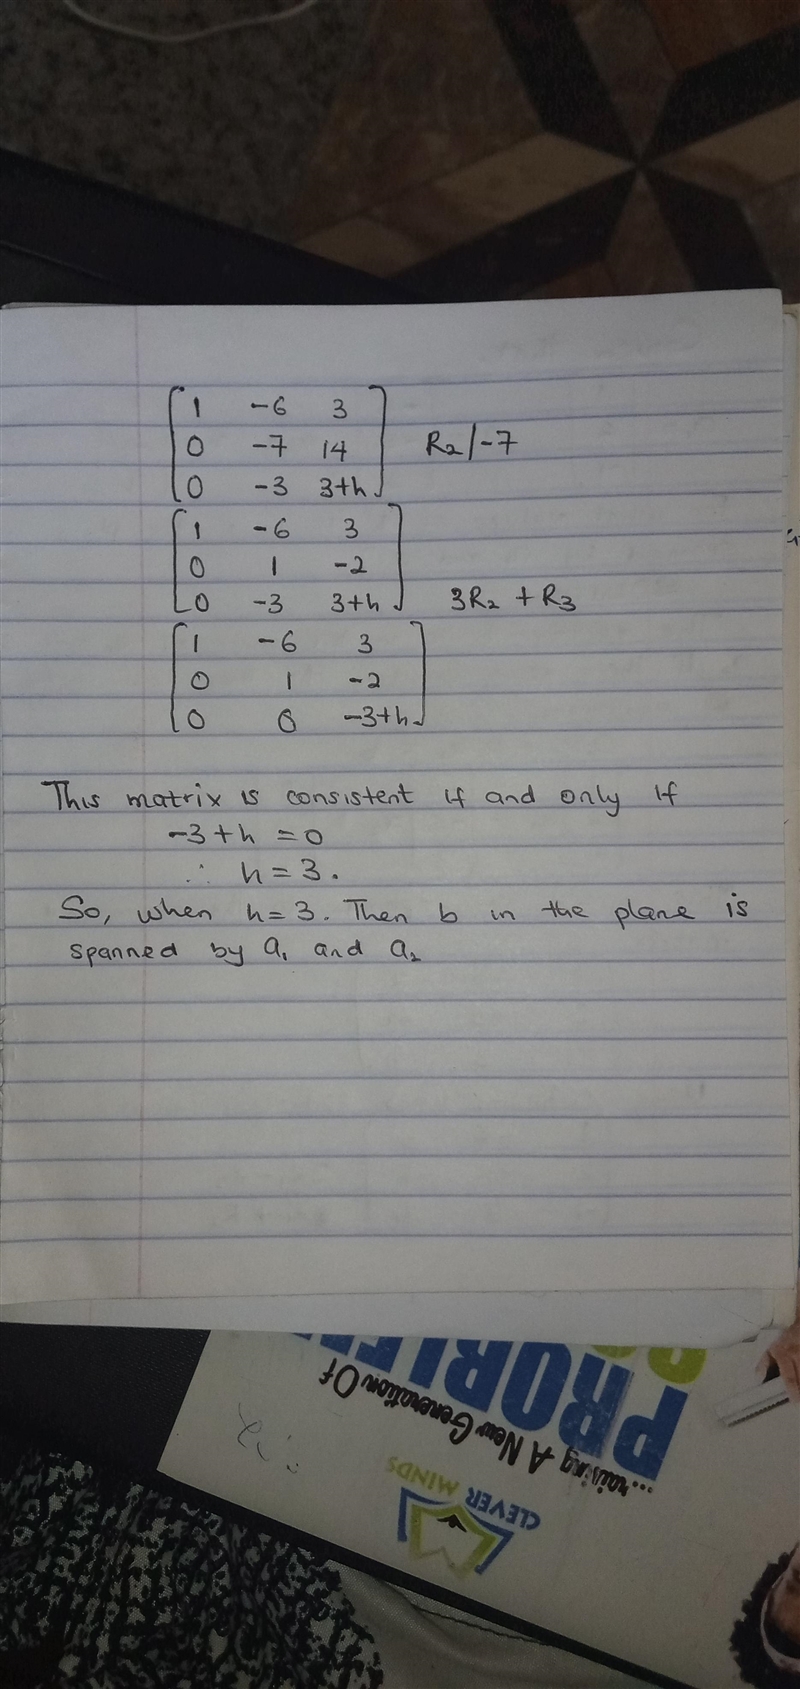 1 -6 3
0 -7 14 R₂/-7
0 -3 3+h
1 -6 3
0 1 -2
0 -3 3+h 3R₂ + R₃
1 -6 3
0 1 -2
0 0 -3+h
This matrix is consistent if and only if
-3+h =0
∴ h=3.
So, when h=3. Then b in the plane is
spanned by a₁ and a₂
...raising A New Generation Of
PROBLEM
CLEVER MINDS